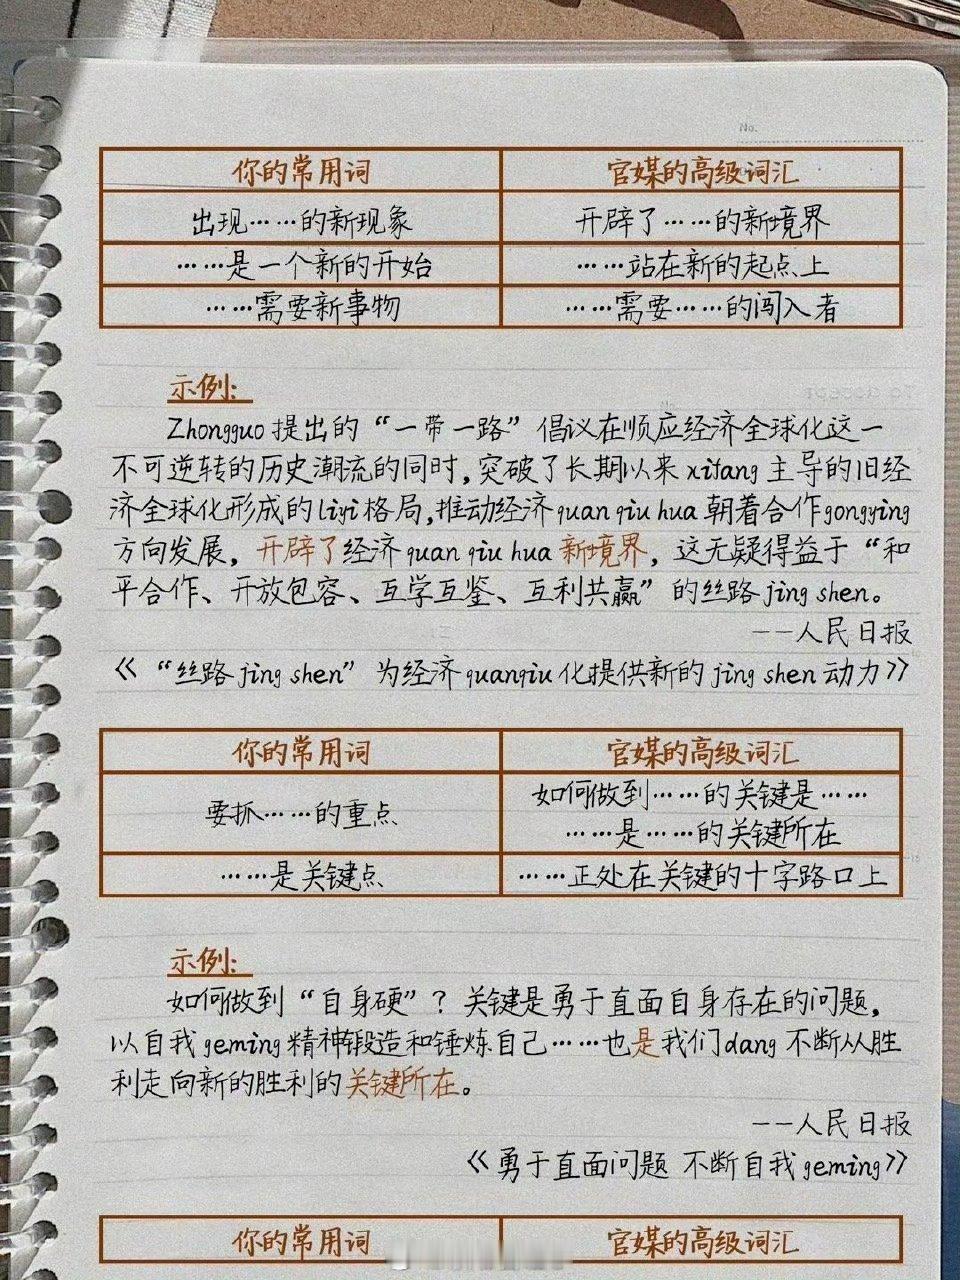 No.
你的常用词 官媒的高级词汇
出现……的新现象 开辟了……的新境界
……是一个新的开始 ……站在新的起点上
……需要新事物 ……需要……的闯入者
示例：
Zhongguo提出的“一带一路”倡议在顺应经济全球化这一
不可逆转的历史潮流的同时，突破了长期以来xifang主导的旧经
济全球化形成的liyi格局，推动经济quan qiu hua朝着合作gongying
方向发展，开辟了经济quan qiu hua新境界，这无疑得益于“和
平合作、开放包容、互学互鉴、互利共赢”的丝路jing shen。
——人民日报
《“丝路jing shen”为经济quanqiu化提供新的jing shen动力》
你的常用词 官媒的高级词汇
要抓……的重点 如何做到……的关键是……
……是……的关键所在
……是关键点 ……正处在关键的十字路口上
示例：
如何做到“自身硬”？关键是勇于直面自身存在的问题，
以自我geming精神锻造和锤炼自己……也是我们dang不断从胜
利走向新的胜利的关键所在。
——人民日报
《勇于直面问题 不断自我geming》
你的常用词 官媒的高级词汇